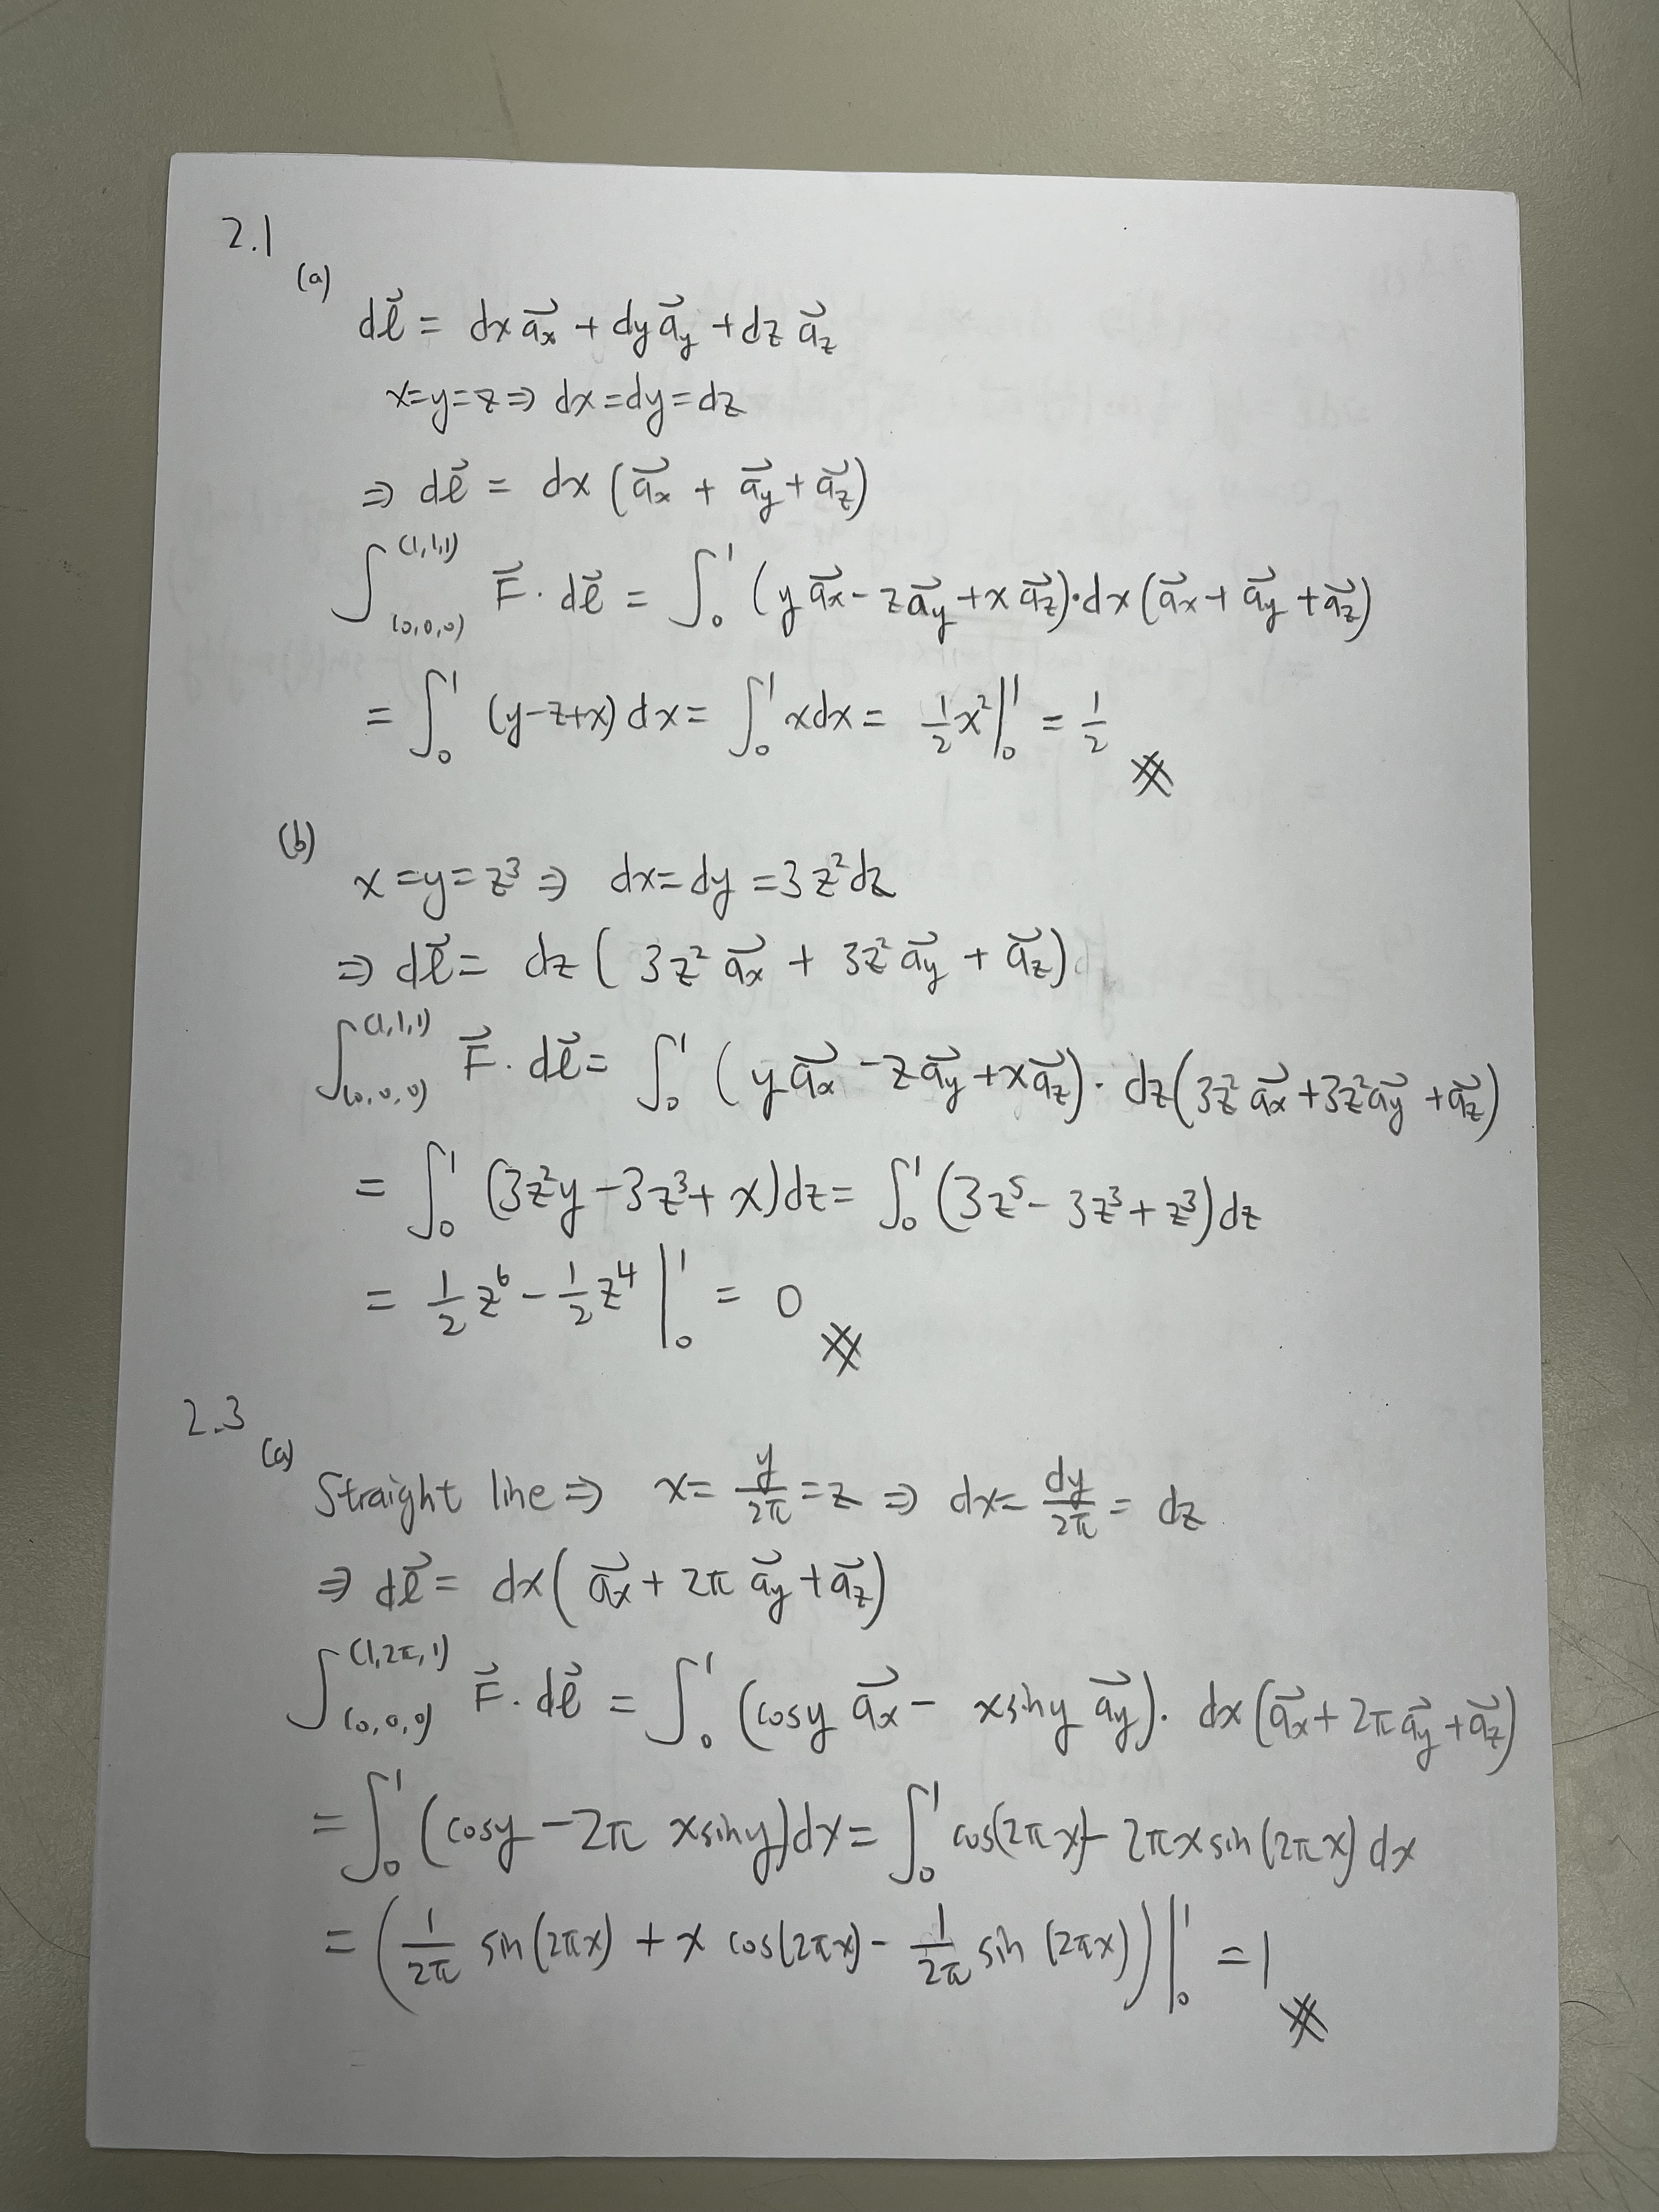 2.1
(a)
dℓ⃗ = dx a⃗x + dy a⃗y + dz a⃗z
x=y=z ⇒ dx=dy=dz
⇒ dℓ⃗ = dx (a⃗x + a⃗y + a⃗z)
∫_(0,0,0)^(1,1,1) F⃗ · dℓ⃗ = ∫_0^1 (y a⃗x − z a⃗y + x a⃗z) · dx (a⃗x + a⃗y + a⃗z)
= ∫_0^1 (y−z+x) dx = ∫_0^1 x dx = 1/2 x² |_0^1 = 1/2
(b)
x = y = z³ ⇒ dx = dy = 3z² dz
⇒ dℓ⃗ = dz ( 3z² a⃗x + 3z² a⃗y + a⃗z)
∫_(0,0,0)^(1,1,1) F⃗ · dℓ⃗ = ∫_0^1 (y a⃗x − z a⃗y + x a⃗z) · dz (3z² a⃗x + 3z² a⃗y + a⃗z)
= ∫_0^1 (3z²y − 3z³ + x) dz = ∫_0^1 (3z⁵ − 3z³ + z³) dz
= 1/2 z⁶ − 1/2 z⁴ |_0^1 = 0
2.3
(a)
Straight line ⇒ x = y/2π = z ⇒ dx = dy/2π = dz
⇒ dℓ⃗ = dx ( a⃗x + 2π a⃗y + a⃗z)
∫_(0,0,0)^(1,2π,1) F⃗ · dℓ⃗ = ∫_0^1 (cosy a⃗x − xsiny a⃗y) · dx (a⃗x + 2π a⃗y + a⃗z)
= ∫_0^1 (cosy − 2π xsiny) dx = ∫_0^1 cos(2πx) − 2πx sin(2πx) dx
= ( 1/2π sin(2πx) + x cos(2πx) − 1/2π sin (2πx) ) |_0^1 = 1